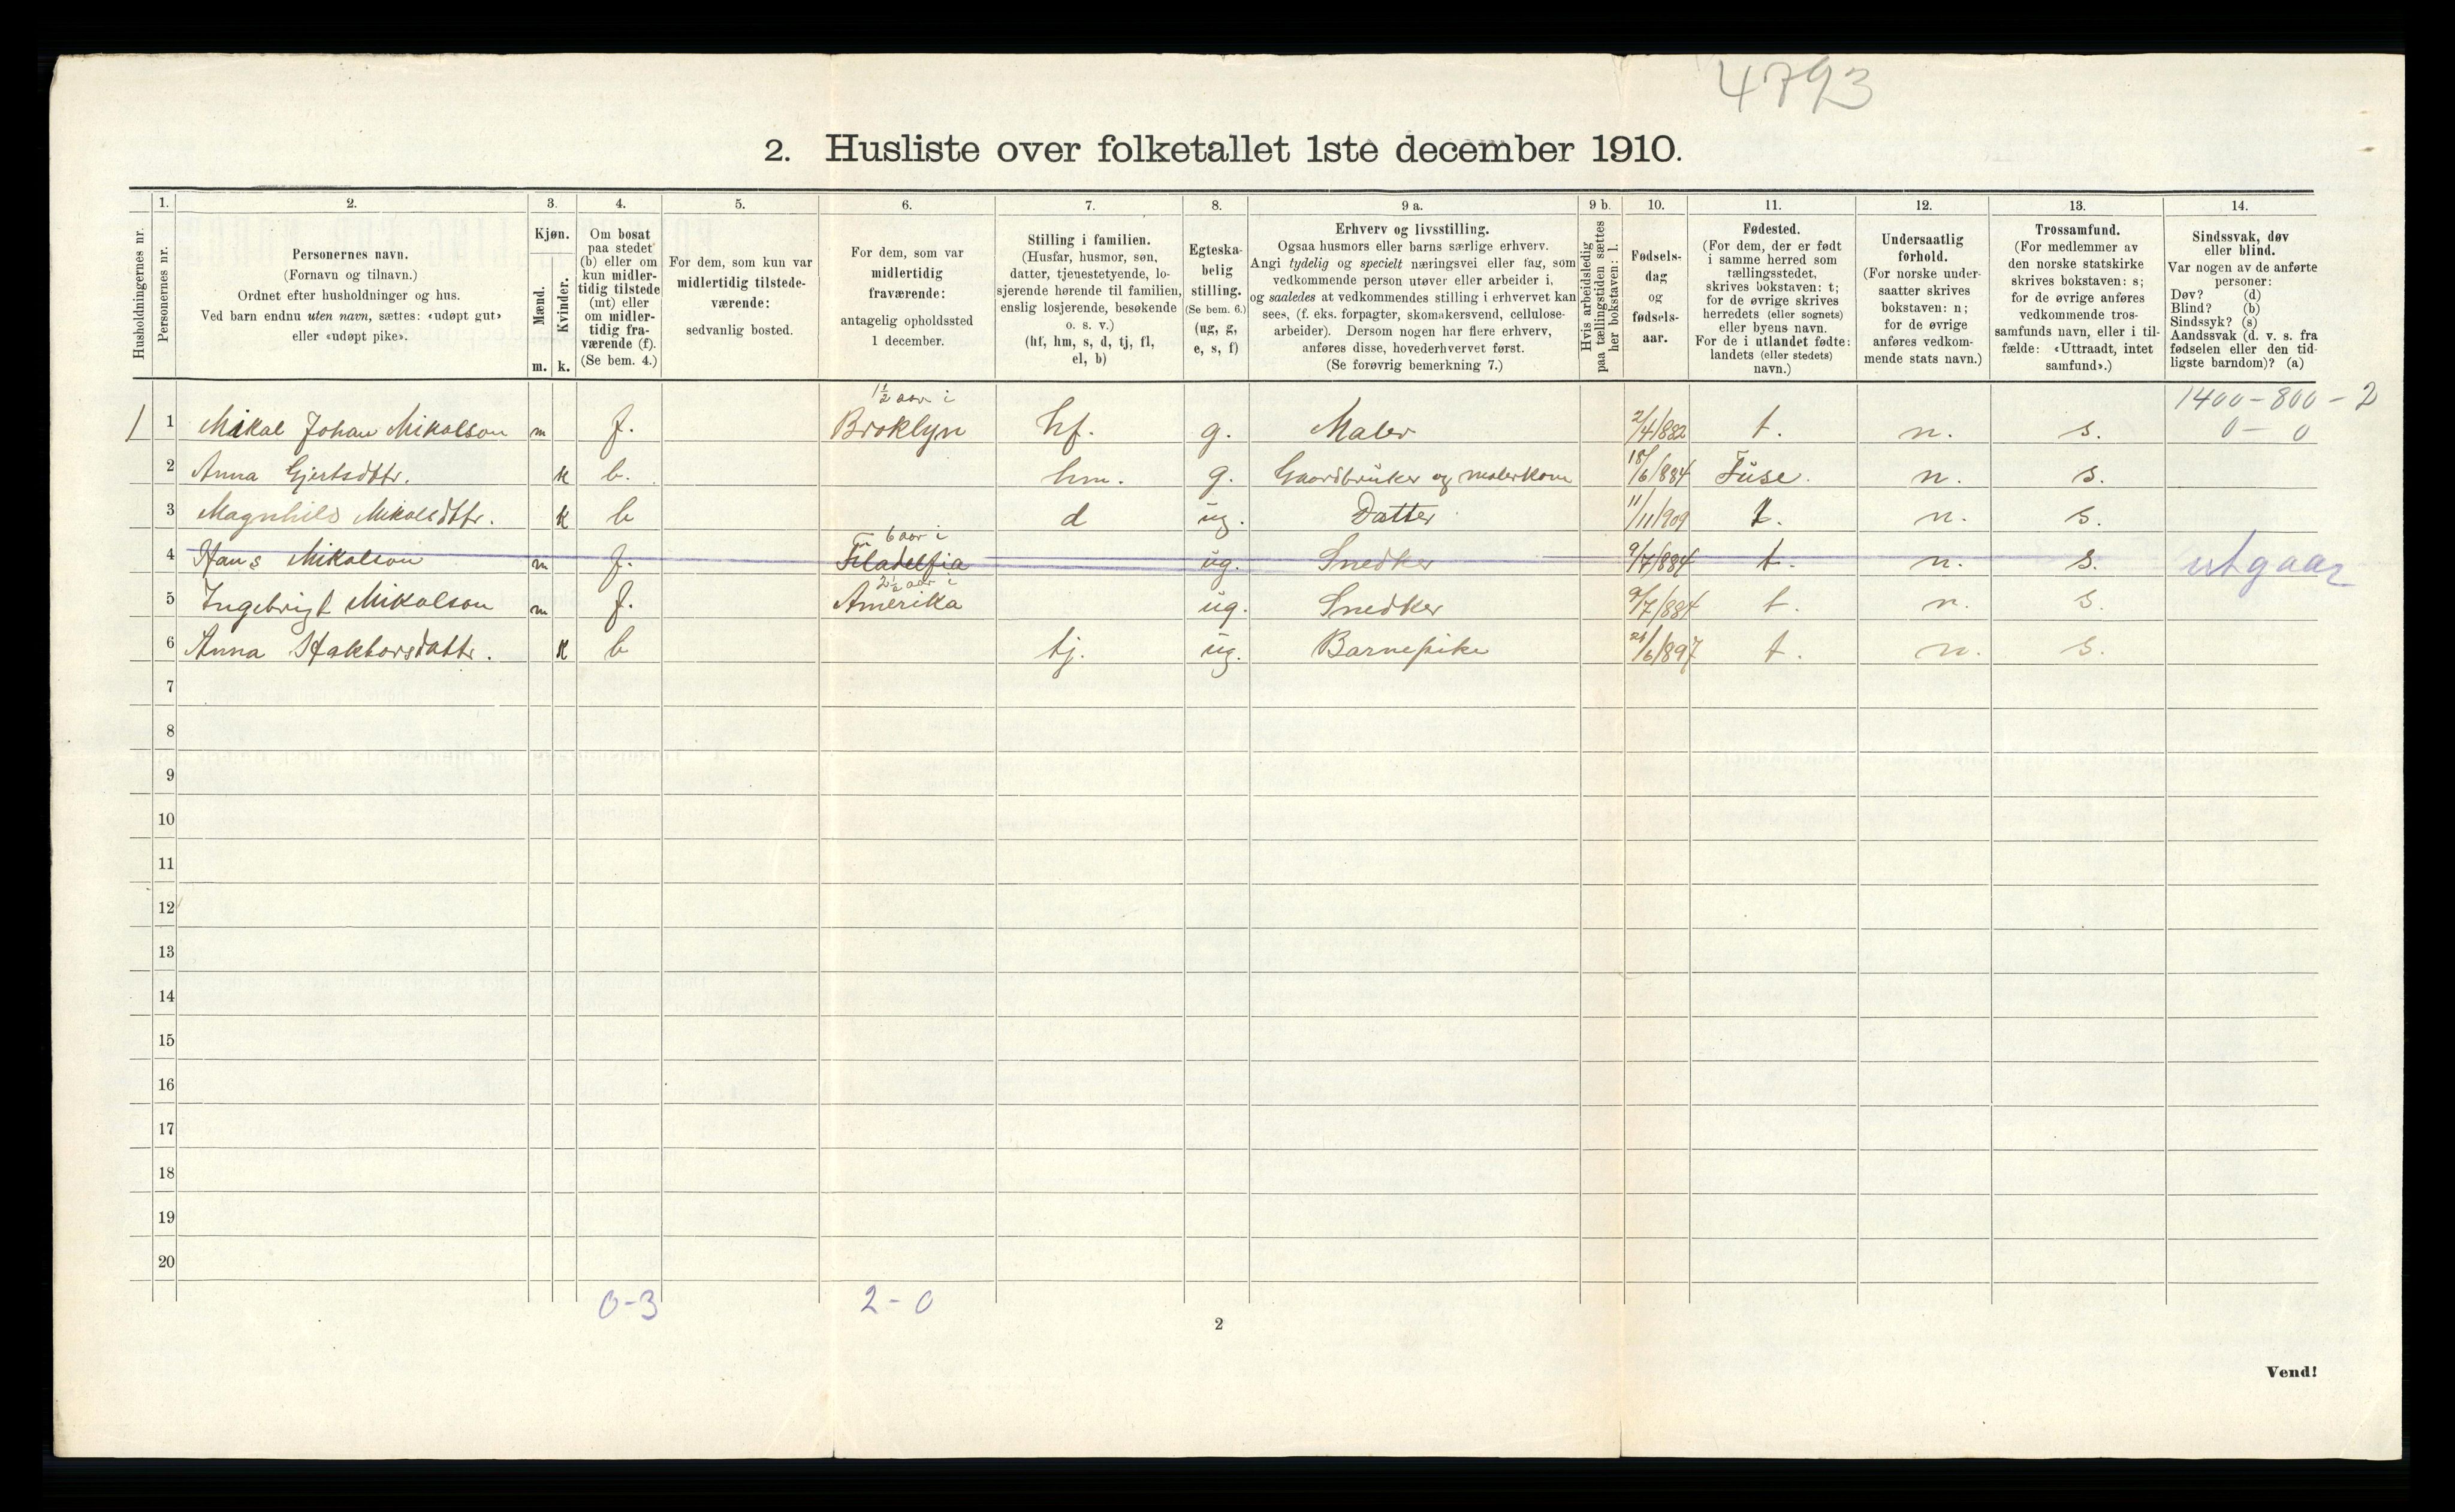 4793
2. Husliste over folketallet 1ste december 1910.
Husholdningernes nr.
1.
Personernes nr.
2.
Personernes navn.
(Fornavn og tilnavn.)
Ordnet efter husholdninger og hus.
Ved barn endnu uten navn, sættes: «udøpt gut»
eller «udøpt pike».
3.
Kjøn.
Mænd.
Kvinder.
m. k.
4.
Om bosat
paa stedet
(b) eller om
kun midler-
tidig tilstede
(mt) eller
om midler-
tidig fra-
værende (f).
(Se bem. 4.)
5.
For dem, som kun var
midlertidig tilstede-
værende:
sedvanlig bosted.
6.
For dem, som var
midlertidig
fraværende:
antagelig opholdssted
1 december.
7.
Stilling i familien.
(Husfar, husmor, søn,
datter, tjenestetyende, lo-
sjerende hørende til familien,
enslig losjerende, besøkende
o. s. v.)
(hf, hm, s, d, tj, fl,
el, b)
8.
Egteska-
belig
stilling.
(Se bem. 6.)
(ug, g,
e, s, f)
9 a.
Erhverv og livsstilling.
Ogsaa husmors eller barns særlige erhverv.
Angi tydelig og specielt næringsvei eller fag, som
vedkommende person utøver eller arbeider i,
og saaledes at vedkommendes stilling i erhvervet kan
sees, (f. eks. forpagter, skomakersvend, cellulose-
arbeider). Dersom nogen har flere erhverv,
anføres disse, hovederhvervet først.
(Se forøvrig bemerkning 7.)
9 b.
Hvis arbeidsledig
paa tællingstiden sættes
her bokstaven: l.
10.
Fødsels-
dag
og
fødsels-
aar.
11.
Fødested.
(For dem, der er født
i samme herred som
tællingsstedet,
skrives bokstaven: t;
for de øvrige skrives
herredets (eller sognets)
eller byens navn.
For de i utlandet fødte:
landets (eller stedets)
navn.)
12.
Undersaatlig
forhold.
(For norske under-
saatter skrives
bokstaven: n;
for de øvrige
anføres vedkom-
mende stats navn.)
13.
Trossamfund.
(For medlemmer av
den norske statskirke
skrives bokstaven: s;
for de øvrige anføres
vedkommende tros-
samfunds navn, eller i til-
fælde: «Uttraadt, intet
samfund».)
14.
Sindssvak, døv
eller blind.
Var nogen av de anførte
personer:
Døv? (d)
Blind? (b)
Sindssyk? (s)
Aandssvak (d. v. s. fra
fødselen eller den tid-
ligste barndom)? (a)
1½ aar i 1400-800-2
1 1 Mikal Johan Mikalson m f. Broklyn hf. g. Maler 2/4/882 t. n. s. 0-0
2 Anna Gjertsdttr. k b. hm. g. Gaardbruker og malerkone 18/6/884 Fuse. n. s.
3 Magnhild Mikalsdttr. k b d ug. Datter 11/11/909 t. n. s.
6 aar i
4 Hans Mikalson m f. Filadelfia ug. Snedker 9/7/884 t. n. s. utgaar
2½ aar i
5 Ingebrigt Mikalson m f. Amerika ug. Snedker 9/7/884 t. n. s.
6 Anna Haktorsdattr. k b tj. ug. Barnepike 21/6/897 t. n. s.
7
8
9
10
11
12
13
14
15
16
17
18
19
20
0-3 2-0
2
Vend!